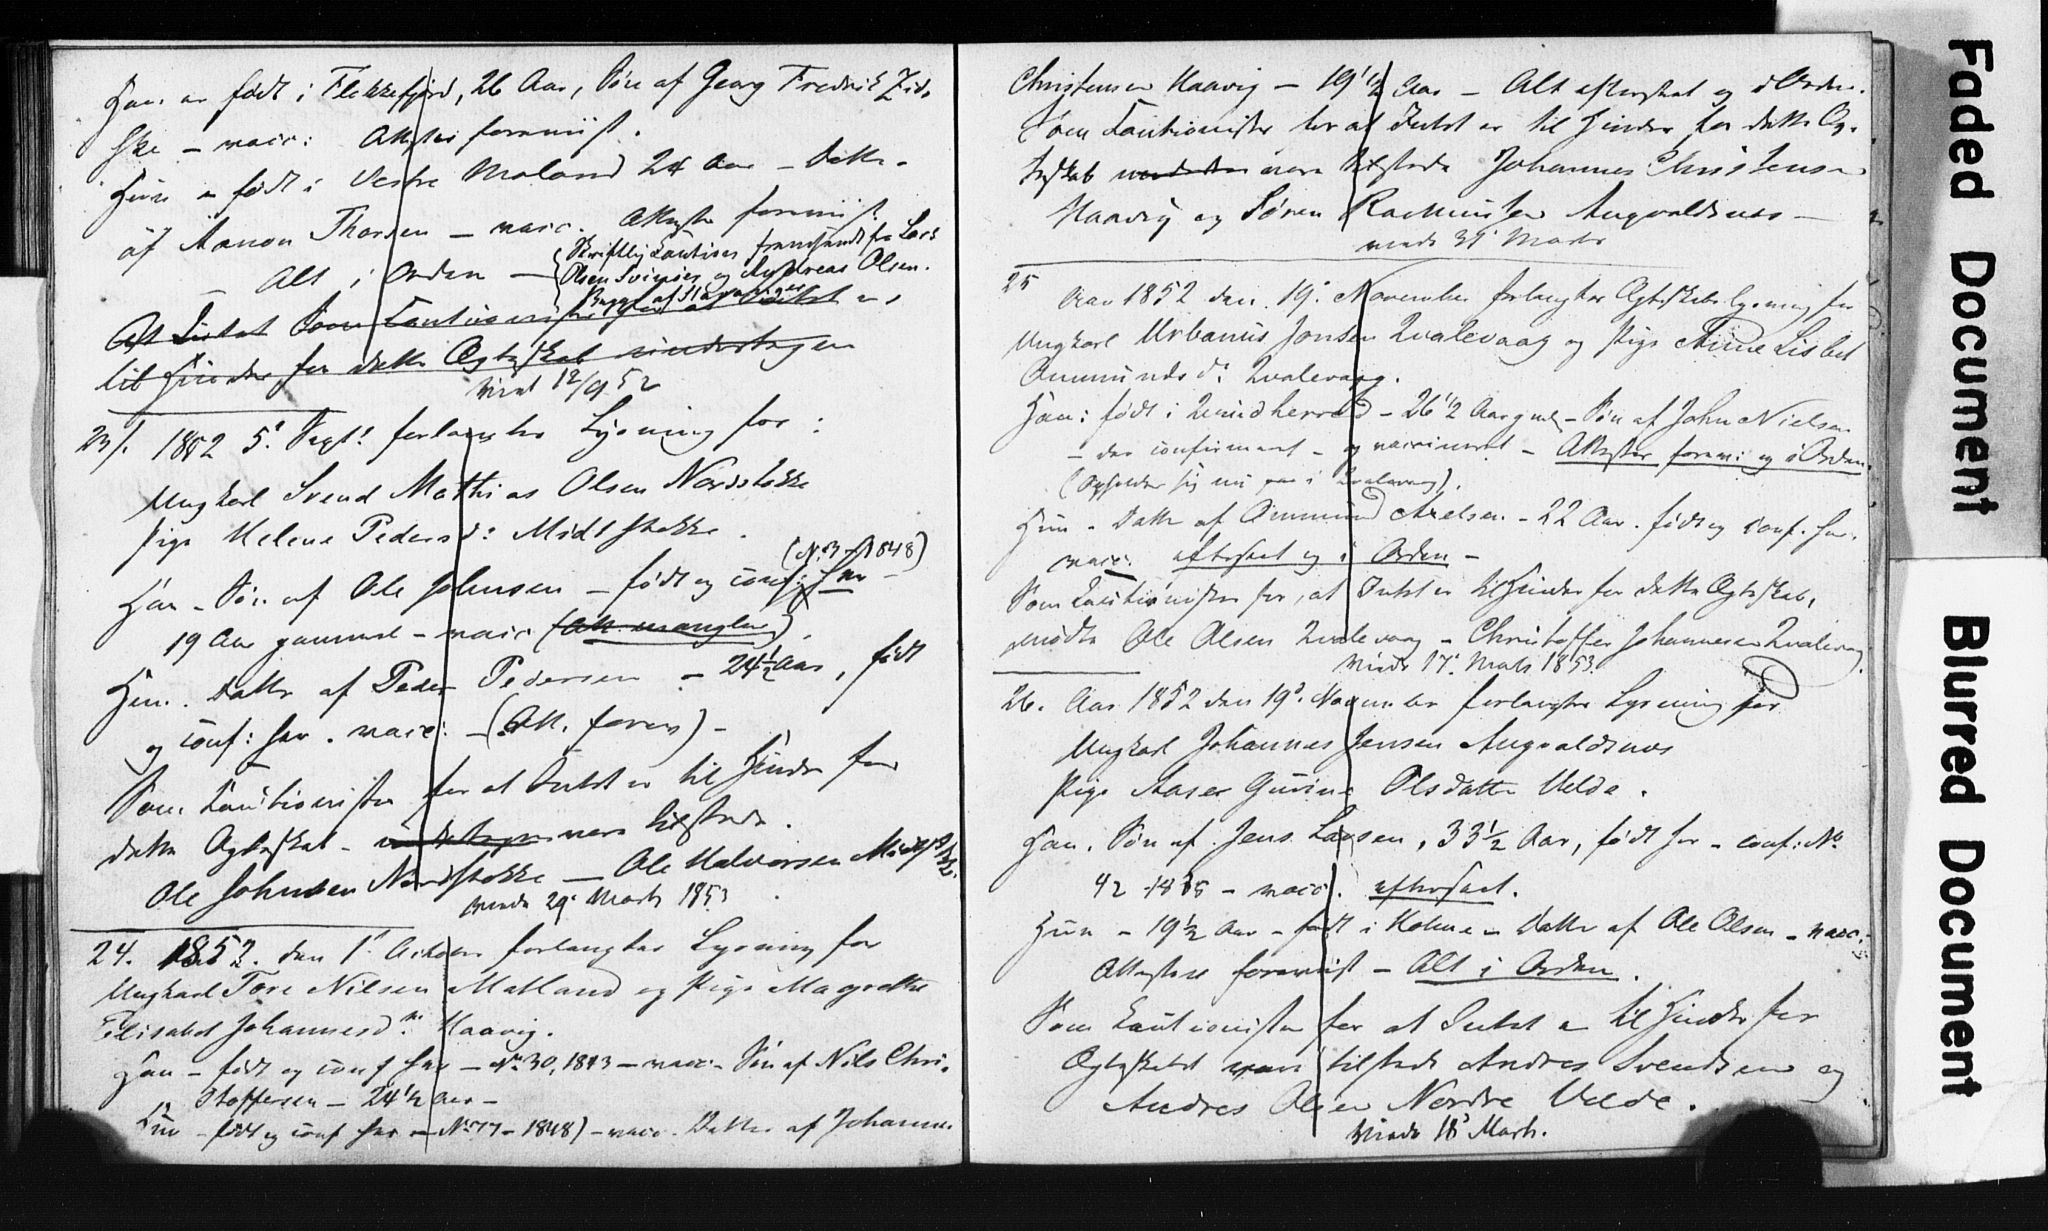 Han er født i Flekkefjord, 26 Aar, Søn af Georg Fredrik
ske – vacc: Attester foreviist.
Hun er født i Vestre Moland 24 Aar – Datter
af Aanon Thorsen – vacc. Attester foreviist.
Alt i Orden – Skriftlig Caution fremsendt fra Lars
Olsen Svinøes og Andreas Olsen
Bugge af Stavanger
At Intet Som Cautionister for at Intet er
til Hinder for dette Ægteskab undertegnede
viet 12/9 52
23/. 1852 5' Sept! forlangtes Lysning for:
Ungkarl Svend Mathias Olsen Nordstokke
Pige Helene Pedersd: Midtstokke.
(No. 3 – 1848)
Han – Søn af Ole Johnsen – født og conf: her –
19 Aar gammel – vacc (Att. mangler).
Hun. Datter af Peder Pedersen – 24½ Aar, født
og conf: her. vacc: – (Att. forev) –
Som Cautionister for at Intet er til Hinder for
dette Ægteskab – undertegn vare tilstede.
Ole Johnsen Nordstokke – Ole Halvorsen Midtstokke.
viede 29' Marts 1853.
24. 1852. den 1' October forlangtes Lysning for
Ungkarl Tore Nilsen Matland og Pige Magrethe
Elisabet Johannesd: Haavig.
Han – født og conf her – No 30, 1843 – vacc – Søn af Nils Chri-
stoffersen – 24½ Aar –
Hun – født og conf her – No 17 – 1848) – vacc. Datter af Johannes
Christensen Haavig – 19½ Aar – Alt efterseet og i Orden.
Som Cautionister for at Intet er til Hinder for dette Æg-
teskab vare tilstede Johannes Christensen
Haavig og Sören Rasmussen Augvaldsnes –
viede 31' Marts
25
Aar 1852 den 19' November forlangtes Ægteskabs lysning for
Ungkarl Urbanus Jonsen Qvalevaag og Pige Anne Lisbet
Ommundsd: Qvalevaag.
Han: født i Qvindherred – 26½ Aar gml – Søn af John Nielsen
– der confirmeret – og vaccineret – Attester forev: og i Orden.
(Opholder sig nu her i Qvalevaag).
Hun – Datter af Ommund Axelsen – 22 Aar. født og conf. her.
vacc: efterseet og i Orden –
Som Cautionister for, at Intet er til Hinder for dette Ægteskab,
mødte Ole Olsen Qvalevaag – Christoffer Johannesen Qvalevaag.
viede 17' Marts 1853.
26. Aar 1852 den 19' November forlangtes Lysning for
Ungkarl Johannes Jensen Augvaldsnes
Pige Aaser Gurine Olsdatter Velde.
Han. Søn af Jens Larsen, 33½ Aar, født her – conf: No
42 – 1835 – vacc. efterseet.
Hun – 19½ Aar – født i – Datter af Ole Olsen – vacc:
Attester foreviist – Alt i Orden.
Som Cautionister for at Intet er til Hinder for
Ægteskabet vare tilstede Andres Svendsen og
Andres Olsen Nordre Velde.
viede 18' Marts.
Faded Document
Blurred Document